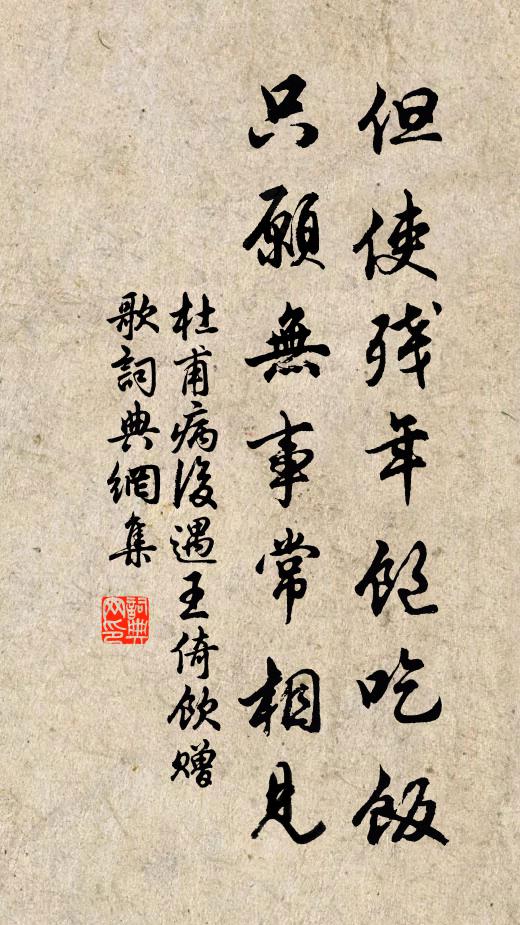 但使残年飽吃飯
只願無事常相見
杜甫病後遇王倚飲贈
歌詞典網集
詞典
网印